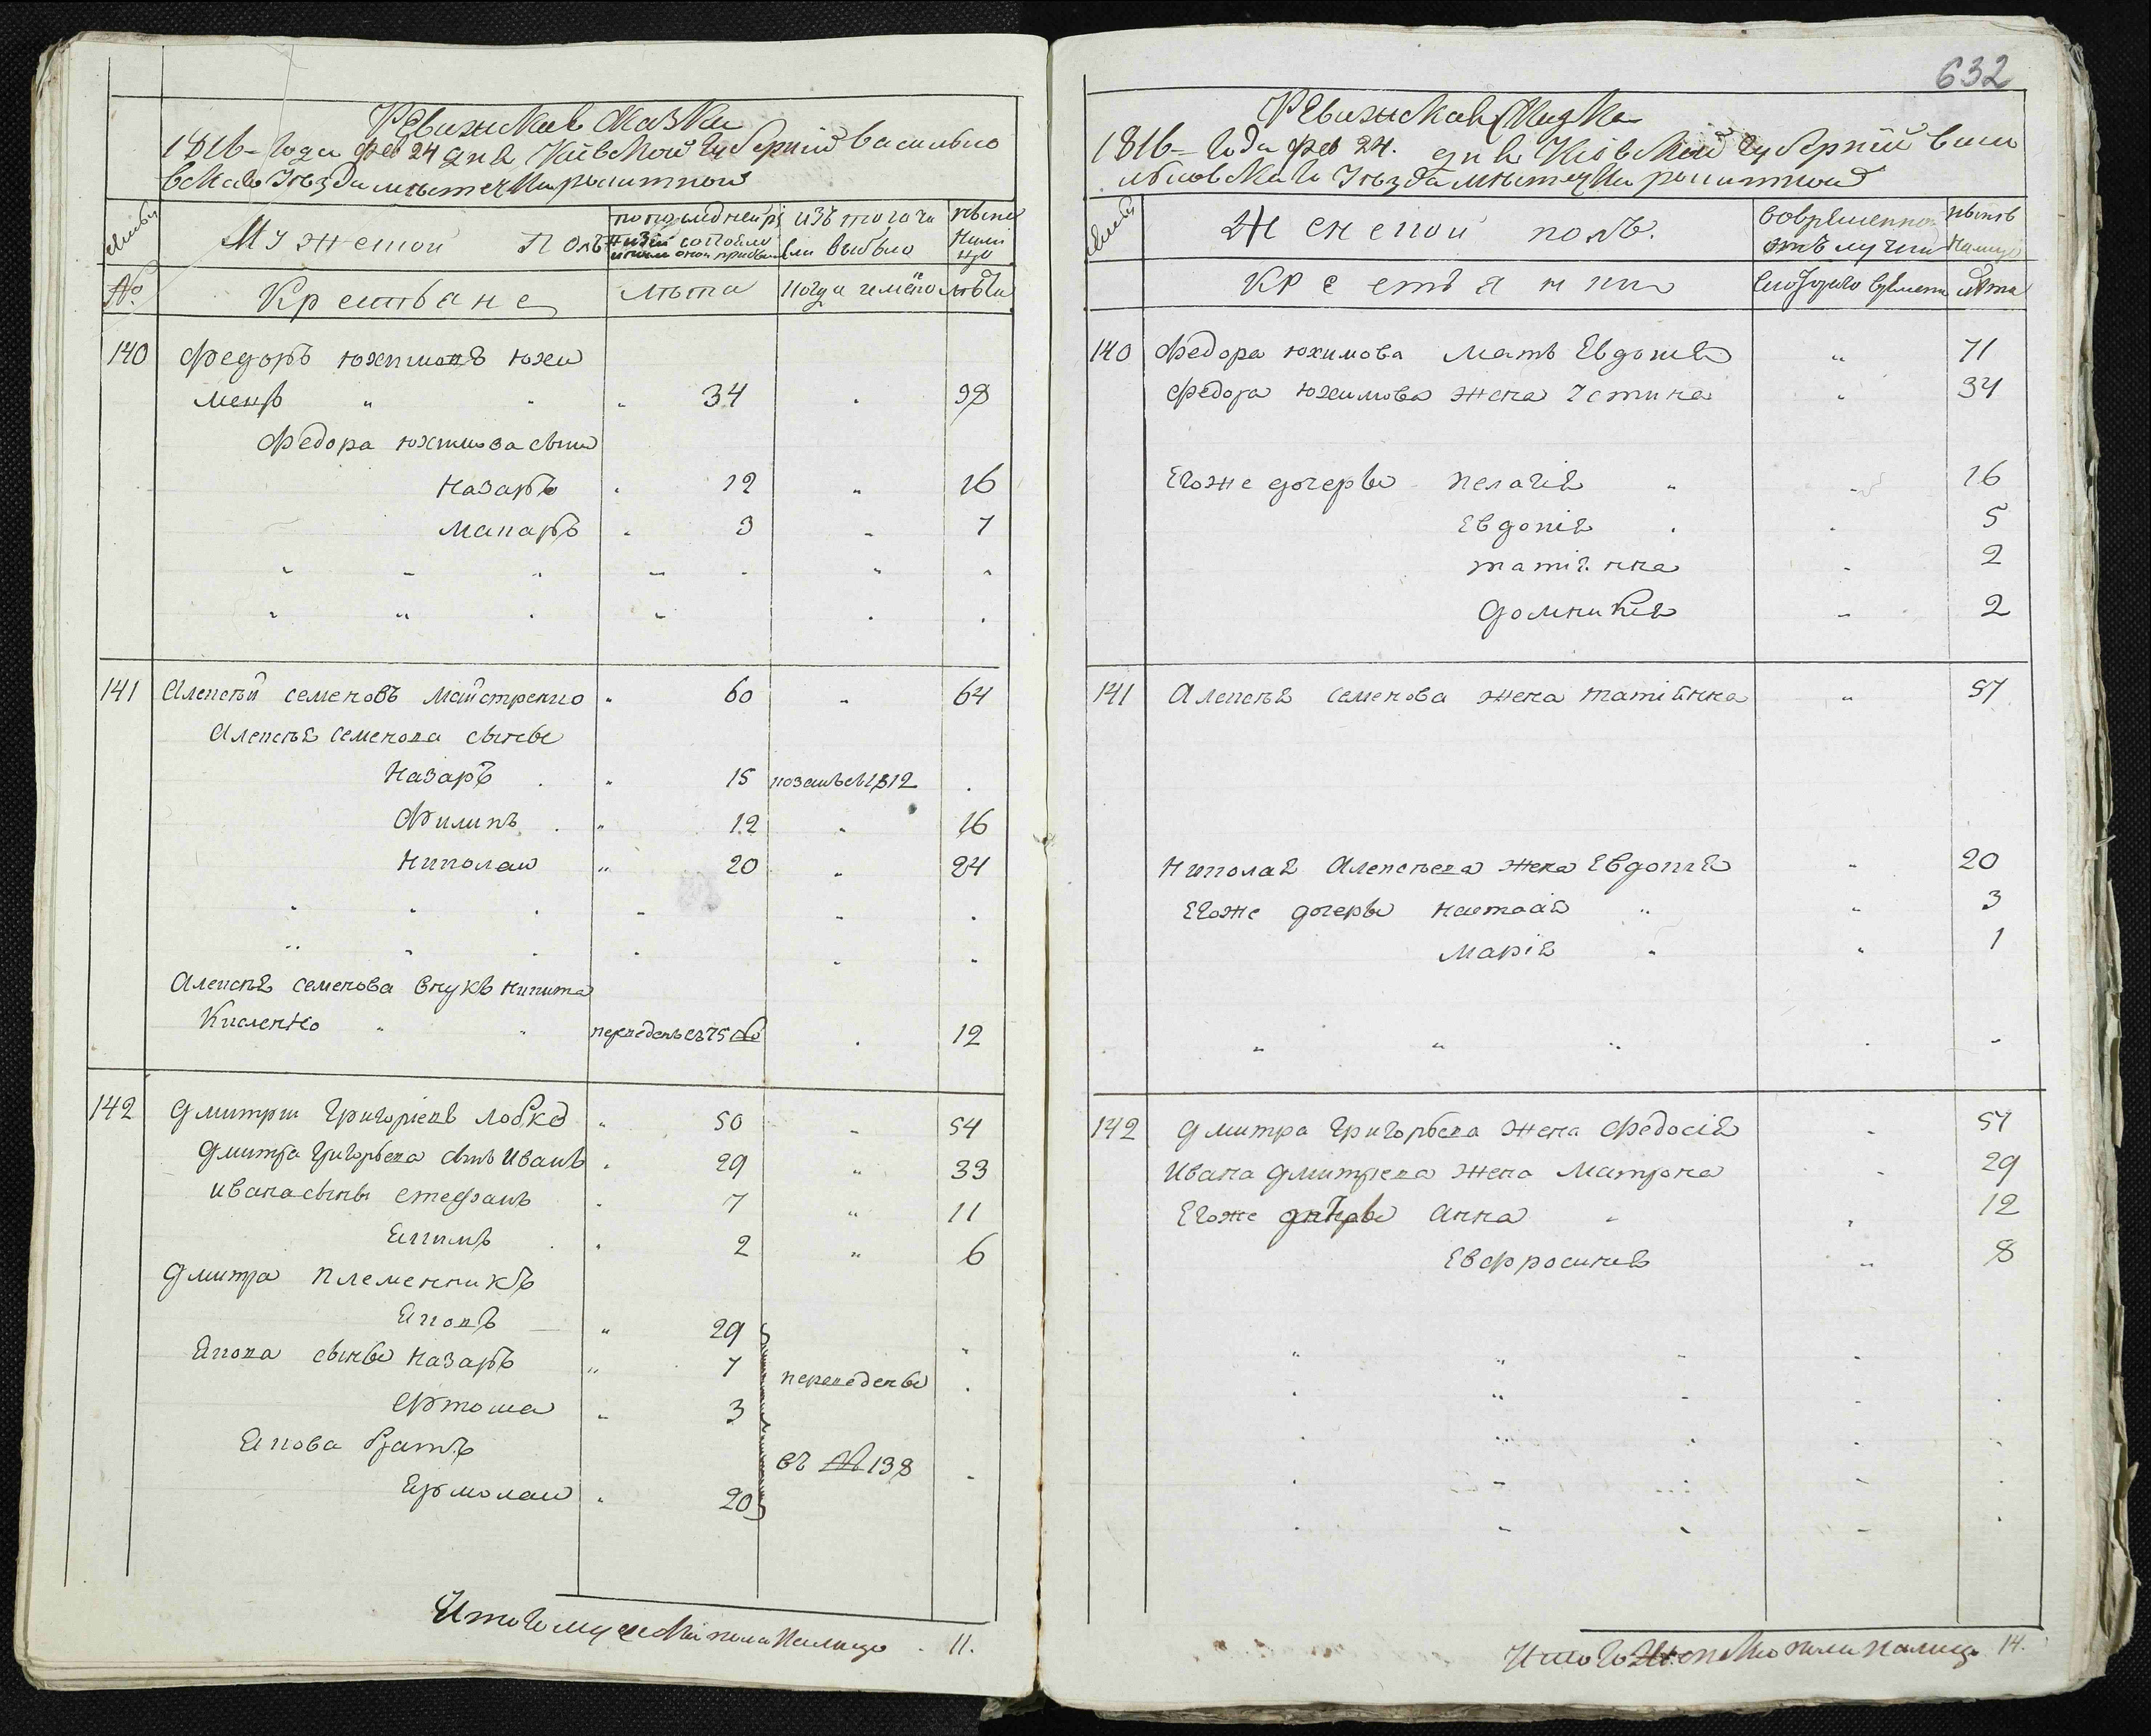 Ревижская сказка
1816 года фев 24 дня Киевской губерний василько
вскаго уезда местечка ракитной
семьи
Мужеской Полъ
по последней ревизии состояло и после оной прибыло
изъ того числа выбыло
ныне на лицо
№
Крестьяне
лета
когда имено
лета
140 Федоръ юхимовъ юхи
менко " " " 34 " 38
Федора юхимова сыны
Назаръ " 12 " 16
Макаръ " 3 " 7
141 Алексей семеновъ майстренко " 60 " 64
Алексея семенова сыны
Назаръ " 15 1812
Филипъ " 12 " 16
Николай " 20 " 24
Алексея семенова внукъ никита
Кисленко " " переведенъ съ 75 № " 12
142 Дмитрии Григориевъ лобко " 50 " 54
Дмитра Григорьева сынъ Иванъ " 29 " 33
Ивана сыны стефанъ " 7 " 11
Екимъ " 2 " 6
Дмитра племенникъ
Яковъ " 29
Якова сыны Назаръ " 7 переведены
" 3
Якова братъ въ № 138
Ермолай " 20
Итого мужеска пола налицо 11.
632
Ревижская Сказка
1816 года фев 24. дня Киевской губерний васи
льковскаго уезда местечка ракитной
семьи
Женской полъ.
во временной отлучки
ныне налицо
Крестьянки
съ котораго времени
лета
140 Федора юхимова мать Евдокия " 71
Федора юхимова жена Устина " 34
Егоже дочеры Пелагия " " 16
Евдокия " " 5
татиянна " 2
Домникия " 2
141 Алексея семенова жена татиянна " 57
Николая Алексеева жена Евдокия " 20
Егоже дочеры настасия " " 3
Мария " " 1
142 Дмитра Григорьева жена Федосия " 54
Ивана Дмитриева жена Матрона " 29
Егоже дочеры Анна " " 12
Евфросиния " 8
Итого женско пола налицо 14.